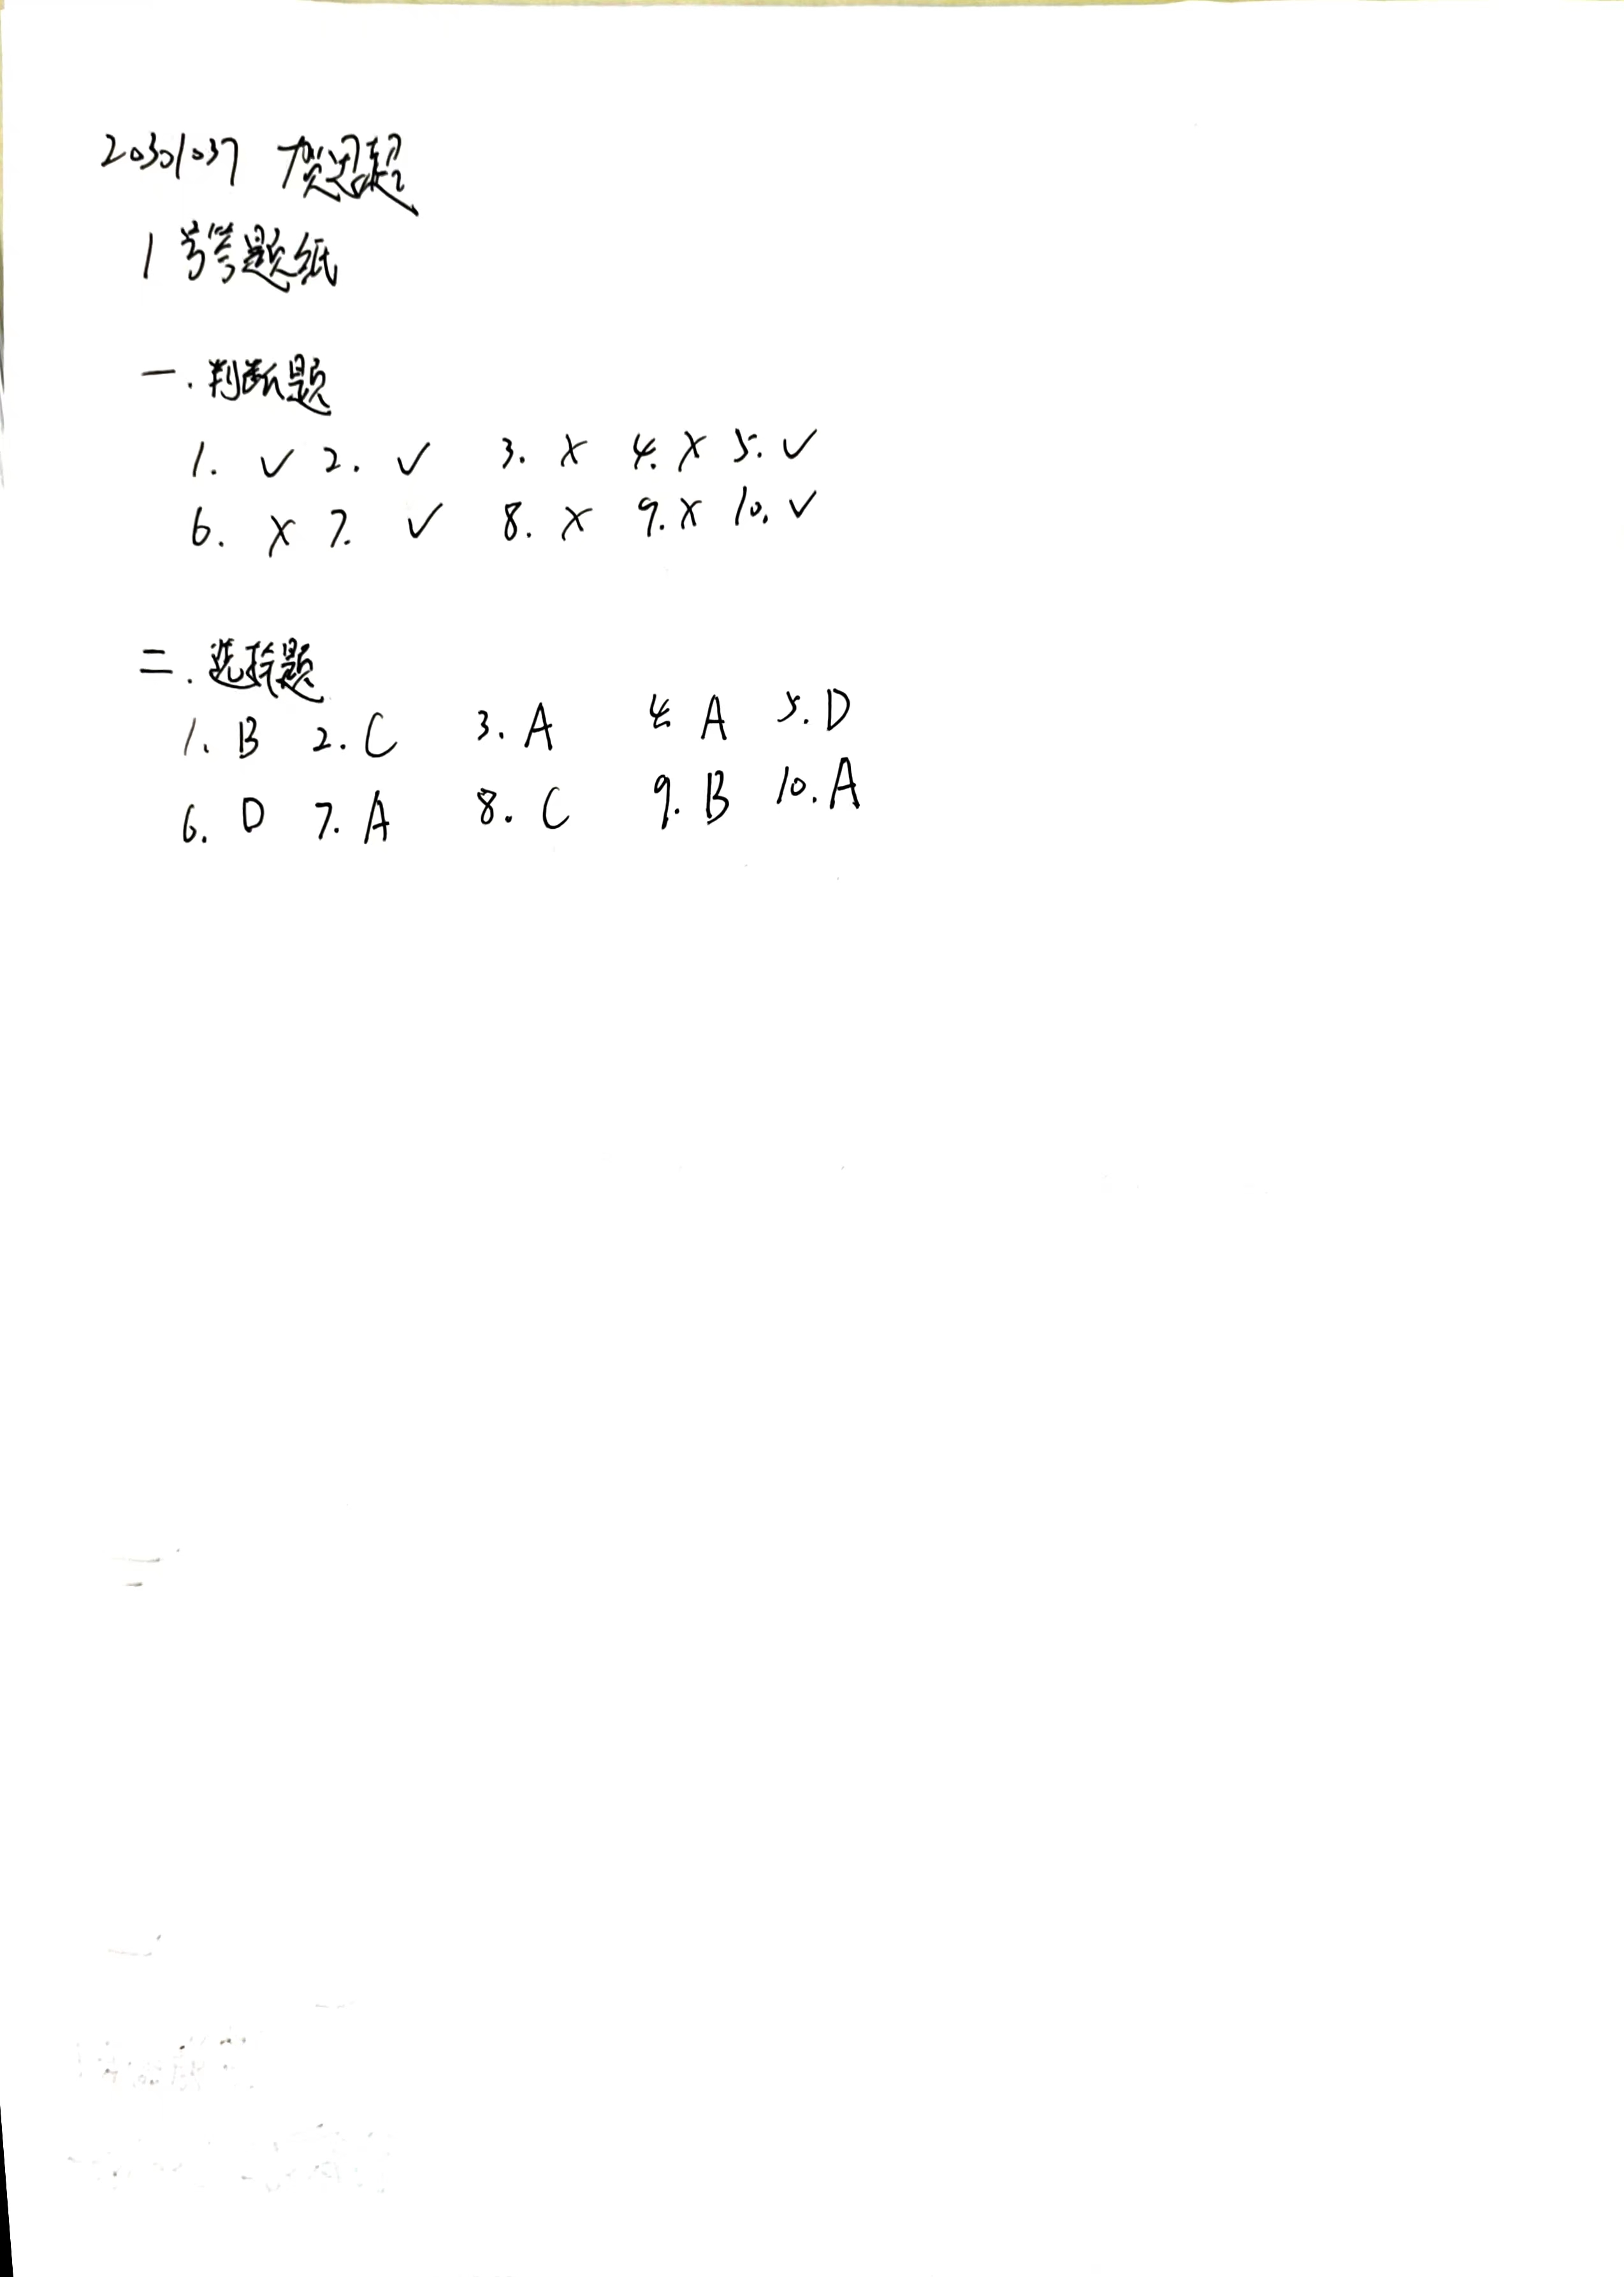 20301037 贺思超
1号答题纸
一.判断题
1. ✓ 2. ✓ 3. × 4. × 5. ✓
6. × 7. ✓ 8. × 9. × 10. ✓
二.选择题
1. B 2. C 3. A 4. A 5. D
6. D 7. A 8. C 9. B 10. A